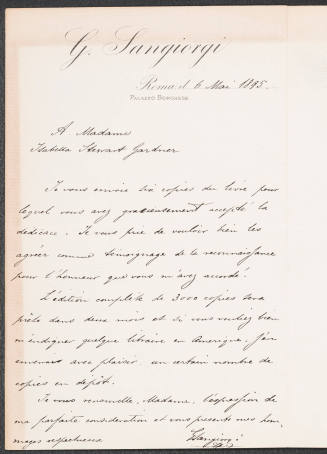 G. Sangiorgi
Roma, il 6 Mai 1895.
Palazzo Borghese
A Madame
Isabella Stewart Gardner
Je vous envoie six copies du livre pour
lequel vous avez gracieusement accepté la
dédicace. Je vous prie de vouloir bien les
agréer comme témoignage de la reconnaissance
pour l'honneur que vous m'avez accordé.
L'édition complète de 3000 copies sera
prête dans deux mois et si vous vouliez bien
m'indiquer quelque libraire en Amerique j'en
enverrais avec plaisir un certain nombre de
copies en depôt.
Je vous renouvelle, Madame, l'expression de
ma parfaite considération et vous presente mes hom-
mages respectueux
GSangiorgi